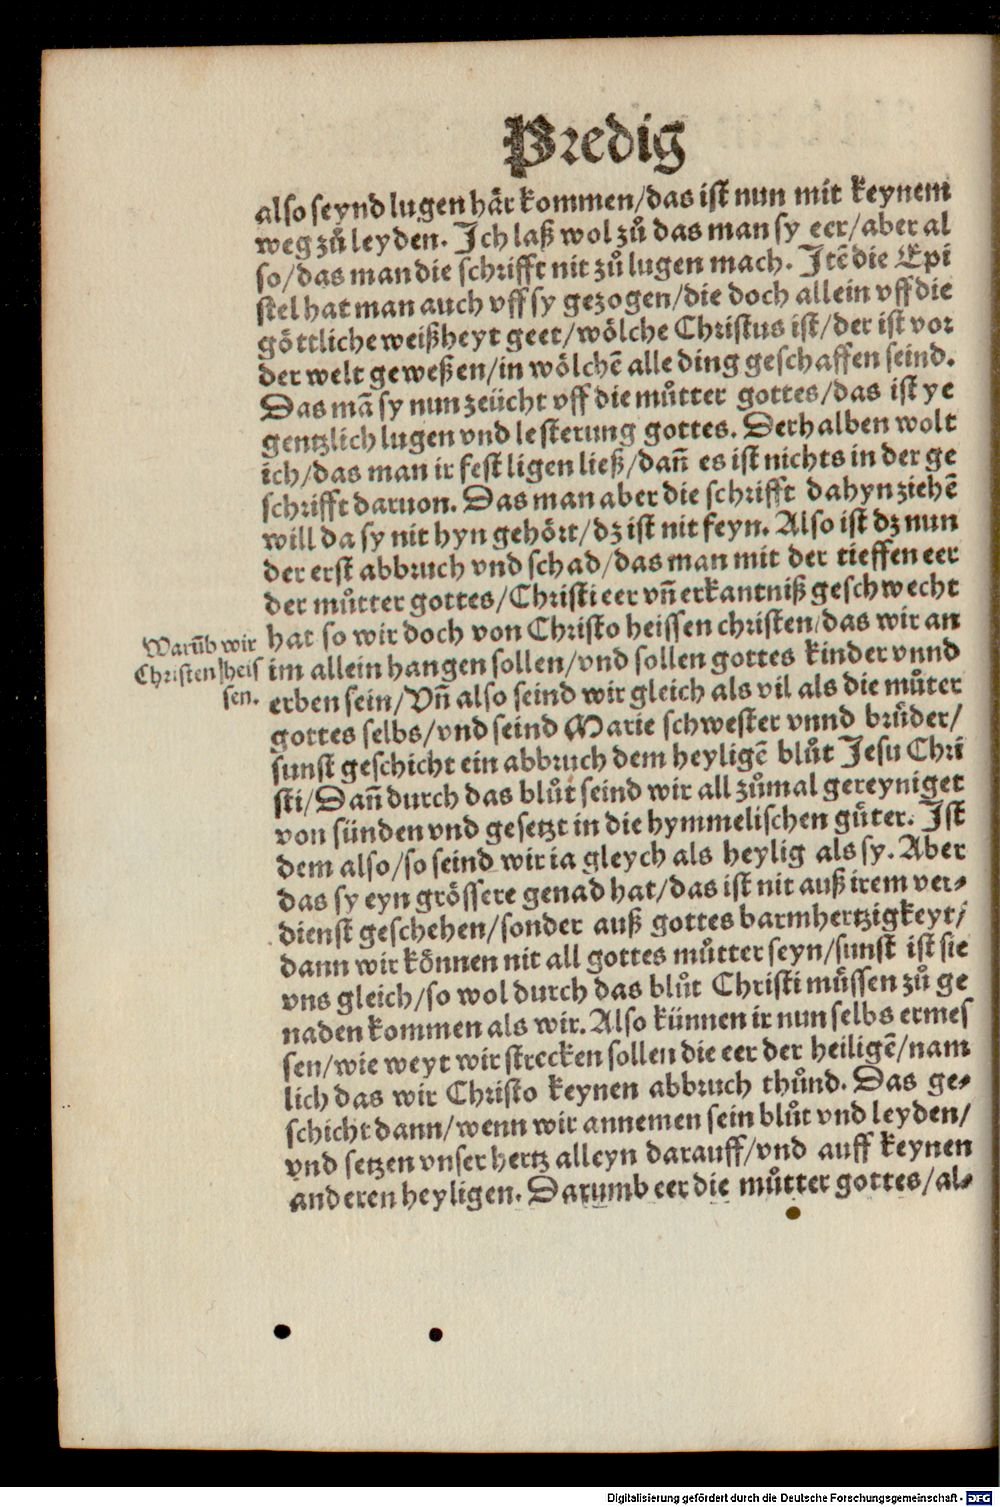 Predig
also seynd lugen här kommen/das ist nun mit keynem
weg zů leyden. Ich laß wol zů das man sy eer/aber al
so/das man die schrifft nit zů lugen mach. Itē die Epi
stel hat man auch vff sy gezogen/die doch allein vff die
göttliche weißheyt geet/wölche Christus ist/der ist vor
der welt geweßen/in wölchē alle ding geschaffen seind.
Das mā sy nun zeücht vff die můtter gottes/das ist ye
gentzlich lugen vnd lesterung gottes. Derhalben wolt
ich/das man ir fest ligen ließ/dañ es ist nichts in der ge
schrifft daruon. Das man aber die schrifft dahyn ziehē
will da sy nit hyn gehört/dz ist nit feyn. Also ist dz nun
der erst abbruch vnd schad/das man mit der tieffen eer
der můtter gottes/Christi eer vñ erkantniß geschwecht
hat so wir doch von Christo heissen christen/das wir an
im allein hangen sollen/vnd sollen gottes kinder vnnd
erben sein/Vñ also seind wir gleich als vil als die můter
gottes selbs/vnd seind Marie schwester vnnd brüder/
sunst geschicht ein abbruch dem heyligē blůt Jesu Chri
sti/Dañ durch das blůt seind wir all zůmal gereyniget
von sünden vnd gesetzt in die hymmelischen güter. Ist
dem also/so seind wir ia gleych als heylig als sy. Aber
das sy eyn grössere genad hat/das ist nit auß irem ver-
dienst geschehen/sonder auß gottes barmhertzigkeyt/
dann wir können nit all gottes můtter seyn/sunst ist sie
vns gleich/so wol durch das blůt Christi müssen zů ge
naden kommen als wir. Also künnen ir nun selbs ermes
sen/wie weyt wir strecken sollen die eer der heiligē/nam
lich das wir Christo keynen abbruch thůnd. Das ge-
schicht dann/wenn wir annemen sein blůt vnd leyden/
vnd setzen vnser hertz alleyn darauff/vnd auff keynen
anderen heyligen. Darumb eer die můtter gottes/al-
Warūb wir
Christen heis
sen.
Digitalisierung gefördert durch die Deutsche Forschungsgemeinschaft - DFG